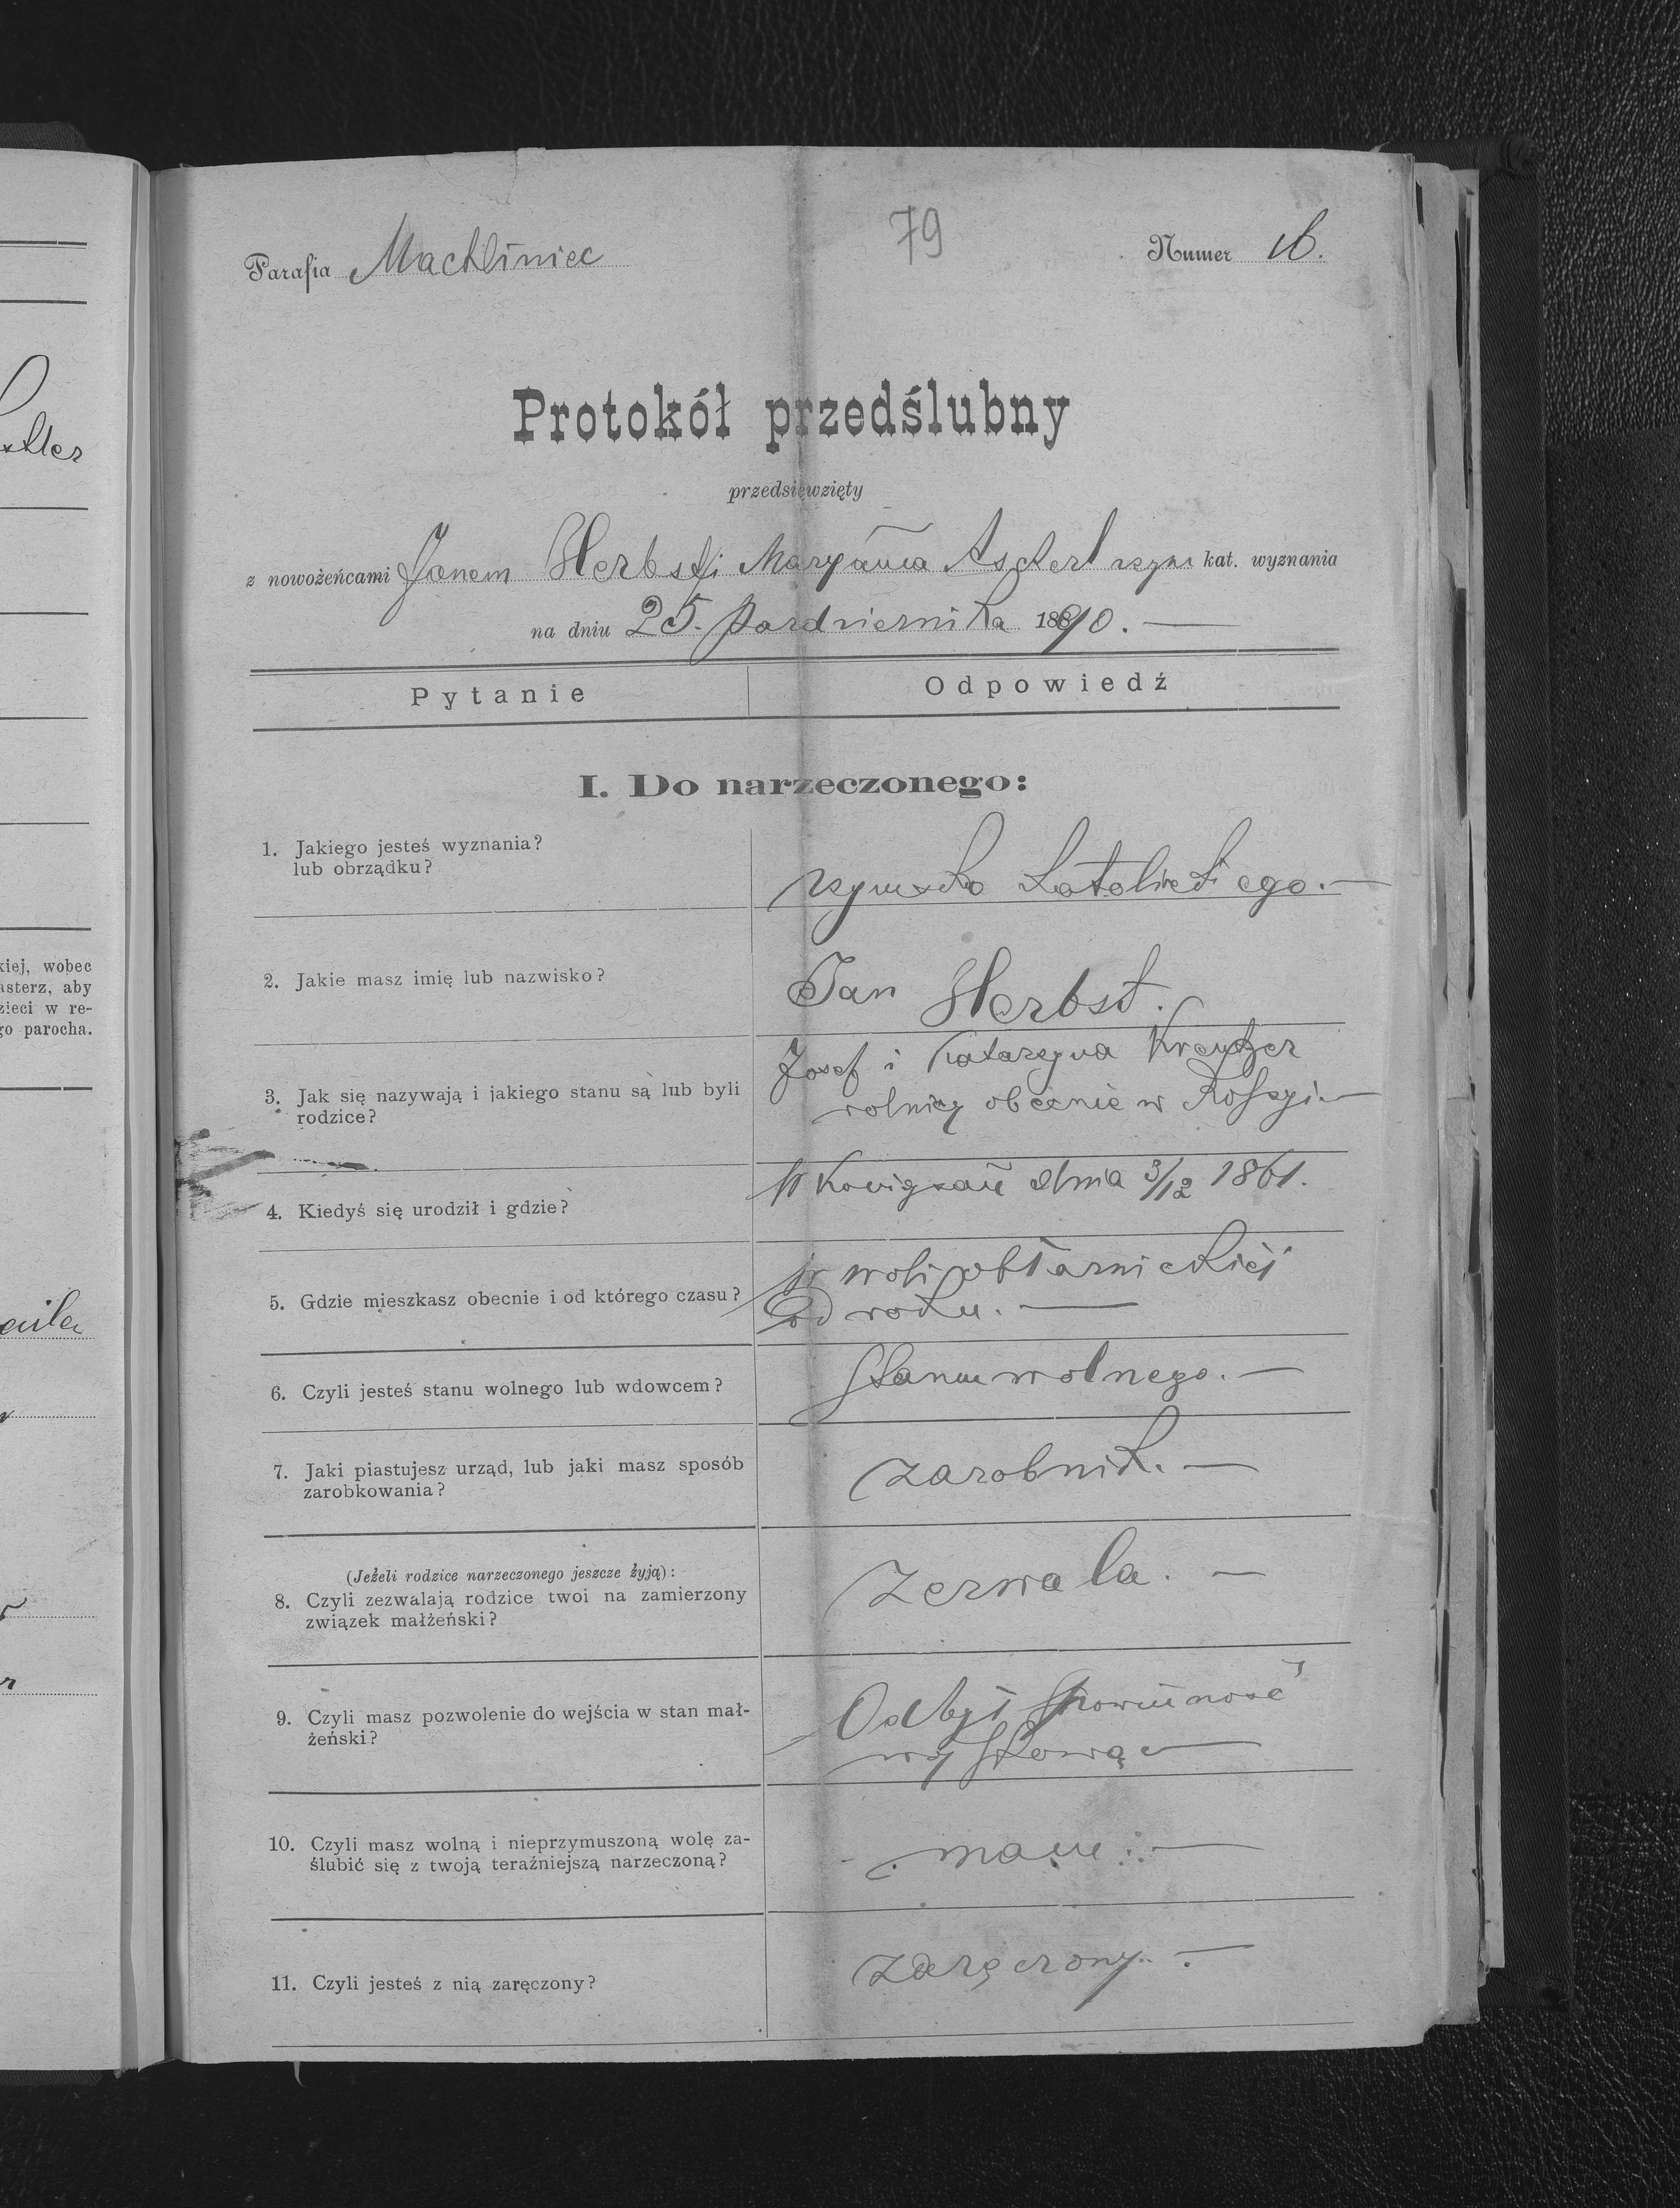 Parafia Machliniec
79
Numer 16.
Protokół przedślubny
przedsięwzięty
z nowożeńcami Janem Herbst i Maryanna Asckerl rzym kat. wyznania
na dniu 25. Pazdziernika 1890. —
Pytanie
Odpowiedź
I. Do narzeczonego:
1. Jakiego jesteś wyznania?
lub obrządku?
rzymsko katolickiego. —
2. Jakie masz imię lub nazwisko?
Jan Herbst.
3. Jak się nazywają i jakiego stanu są lub byli
rodzice?
Josef i Katarzyna Kreutzer
rolnicy obecnie w Rossyi. —
4. Kiedyś się urodził i gdzie?
W Konigsau dnia 3/12 1861.
5. Gdzie mieszkasz obecnie i od którego czasu?
w woli obłarnickiej
Od roku. —
6. Czyli jesteś stanu wolnego lub wdowcem?
Stanu wolnego. —
7. Jaki piastujesz urząd, lub jaki masz sposób
zarobkowania?
zarobnik. —
(Jeżeli rodzice narzeczonego jeszcze żyją):
8. Czyli zezwalają rodzice twoi na zamierzony
związek małżeński?
zezwala. —
9. Czyli masz pozwolenie do wejścia w stan mał-
żeński?
Odbył powinność
wojskową —
10. Czyli masz wolną i nieprzymuszoną wolę za-
ślubić się z twoją teraźniejszą narzeczoną?
mam. —
11. Czyli jesteś z nią zaręczony?
zaręczony. —
kiej, wobec
asterz, aby
zieci w re-
go parocha.